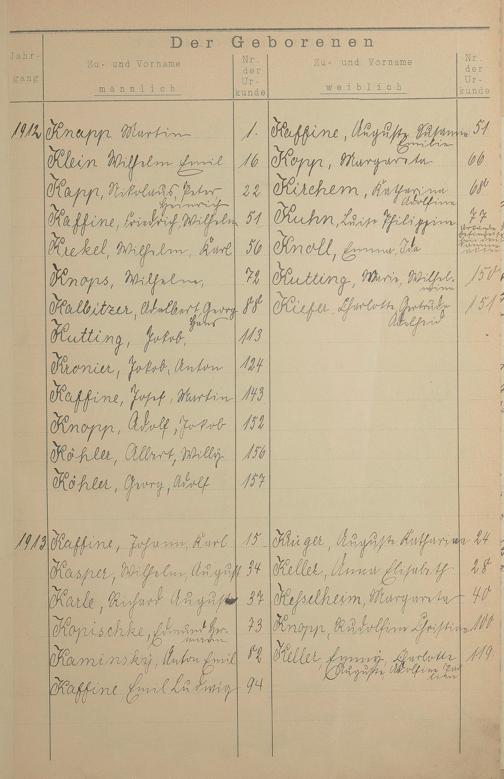 Der Geborenen
Jahr-
gang
Zu- und Vorname
männlich
Nr.
der
Ur-
kunde
Zu- und Vorname
weiblich
Nr.
der
Ur-
kunde
1912 Knapp Martin 1. Kaffine, Auguste Susanna 51
Emilie
Klein Wilhelm Emil 16 Kopp, Margareta 66
Kapp, Nikolaus, Peter 22 Kirchem, Katharina 68
Heinrich Adolfine
Kaffine, Friedrich, Wilhelm 51 Kuhn, Luise Philippine 77
Krekel, Wilhelm, Karl 56 Knoll, Emma, Ida
Knops, Wilhelm, 72 Kutting, Maria, Wilhel-
mine 150
Kalbitzer, Adelbert, Georg 88 Kiefer Charlotte Gertrude 151
Hans Adelheid
Kutting, Jakob, 113
Kronier, Jakob, Anton 124
Kaffine, Josef, Martin 143
Knopp, Adolf, Jakob 152
Köhler, Albert, Willy 156
Köhler, Georg, Adolf 157
1913 Kaffine, Johann, Karl 15 Krieger, Auguste Katharina 24
Kasper, Wilhelm, August 34 Keller, Anna Elisabeth 28
Karle, Richard August 37 Kesselheim, Margareta 40
Kopischke, Edmund Her-
mann 73 Knopp, Rudolfine Christine 100
Kaminsky, Anton Emil 82 Keller, Emmy, Charlotte 119
Auguste Adolfine
Kaffine, Emil Ludwig 94